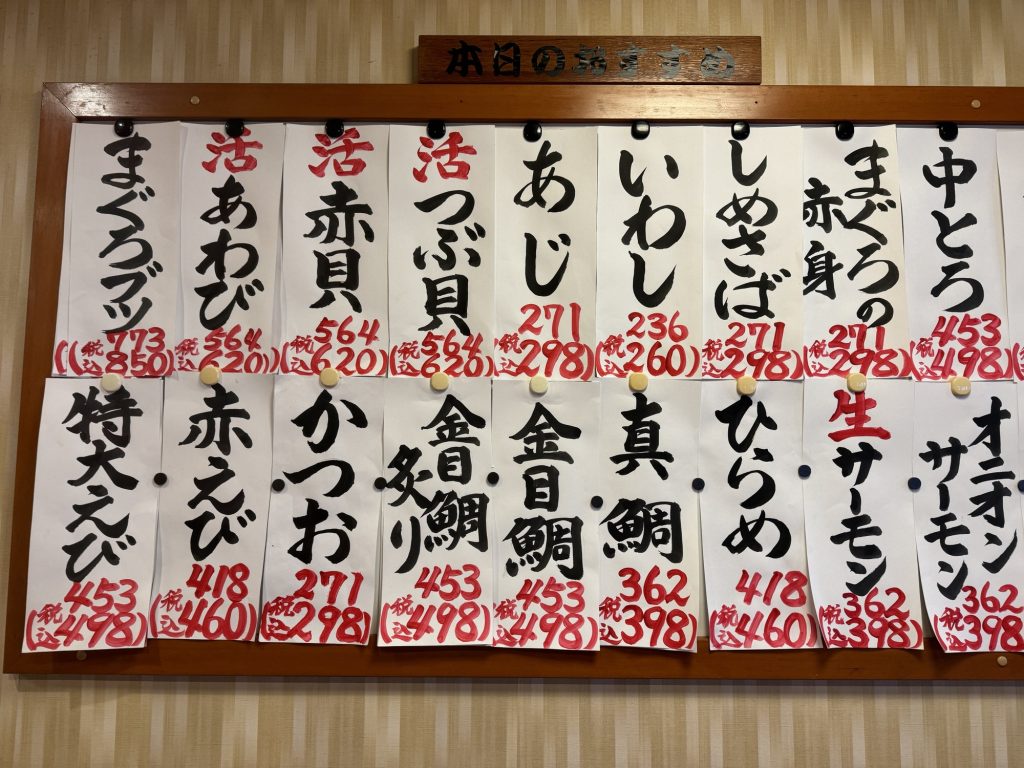 本日のおすすめ
中とろ
453
(税込498)
まぐろの
赤身
271
(税込298)
しめさば
271
(税込298)
いわし
236
(税込260)
あじ
271
(税込298)
活つぶ貝
564
(税込620)
活赤貝
564
(税込620)
活あわび
564
(税込620)
まぐろブツ
773
(税込850)
オニオン
サーモン
362
(税込398)
生サーモン
362
(税込398)
ひらめ
418
(税込460)
真鯛
362
(税込398)
金目鯛
453
(税込498)
金目鯛
炙り
453
(税込498)
かつお
271
(税込298)
赤えび
418
(税込460)
特大えび
453
(税込498)